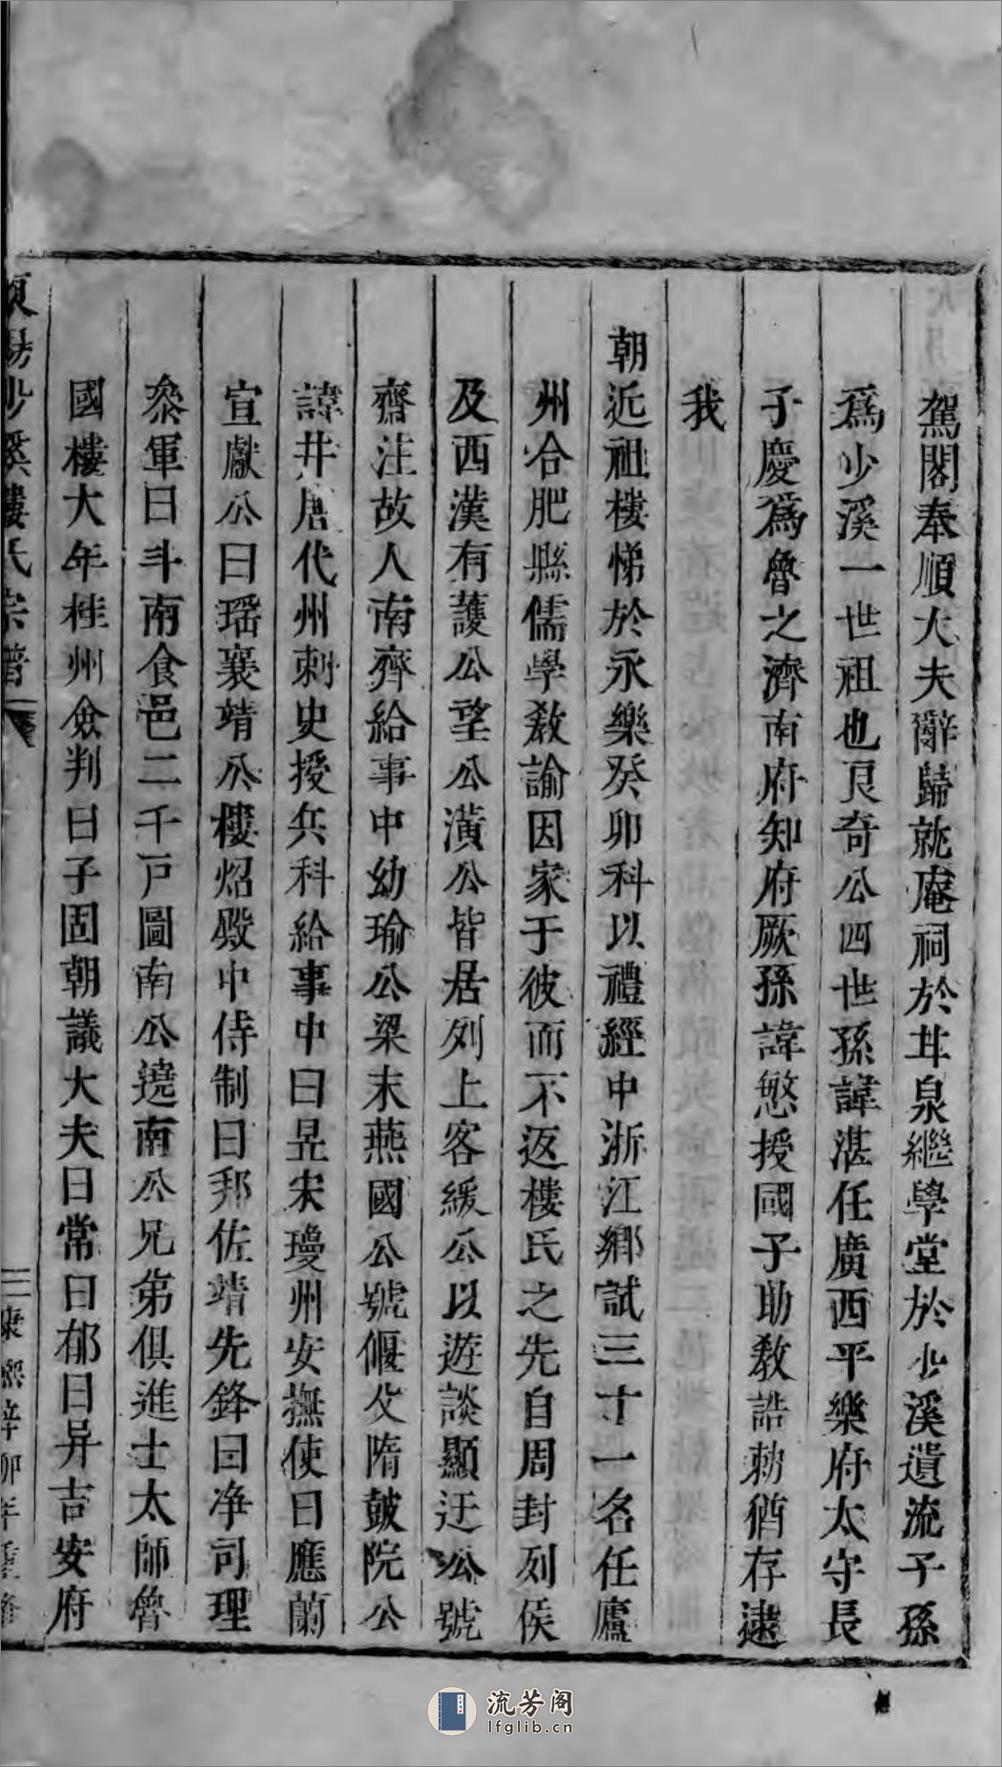 駕閣奉順大夫辭歸就庵祠於井泉繼學堂於少溪遺流子孫
爲少溪一世祖也良奇公四世孫諱湛任廣西平樂府太守長
子慶爲魯之濟南府知府厥孫諱慜授國子助敎誥勅猶存逮
我
朝近祖樓悌於永樂癸卯科以禮經中浙江鄕試三十一名任廬
州合肥縣儒學敎諭因家于彼而不返樓氏之先自周封列侯
及西漢有護公望公潢公皆居列上客緩公以遊談顯迂公號
齋注故人南齊給事中幼瑜公梁末燕國公號偃攵隋鼓院公
諱井唐代州刺史授兵科給事中曰昱宋瓊州安撫使曰應蘭
宣獻公曰瑶襄靖公樓炤殿中侍制曰邦佐靖先鋒曰净司理
叅軍曰斗南食邑二千戸圖南公遶南公兄弟俱進士太師魯
國樓大年桂州僉判曰子固朝議大夫曰常曰郁曰异吉安府
東陽少溪樓氏宗譜
三 康熙辛卯年重修
流芳阁
lfglib.cn